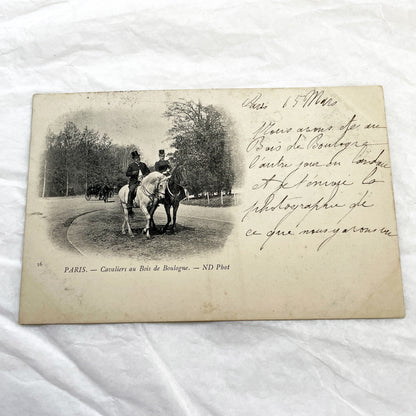 Paris 15 Mars
Nous avons été au
Bois de Boulogne
l'autre jour en landau
et je t'envoie la
photographie de
ce que nous avons vu
16
PARIS. — Cavaliers au Bois de Boulogne. — ND Phot